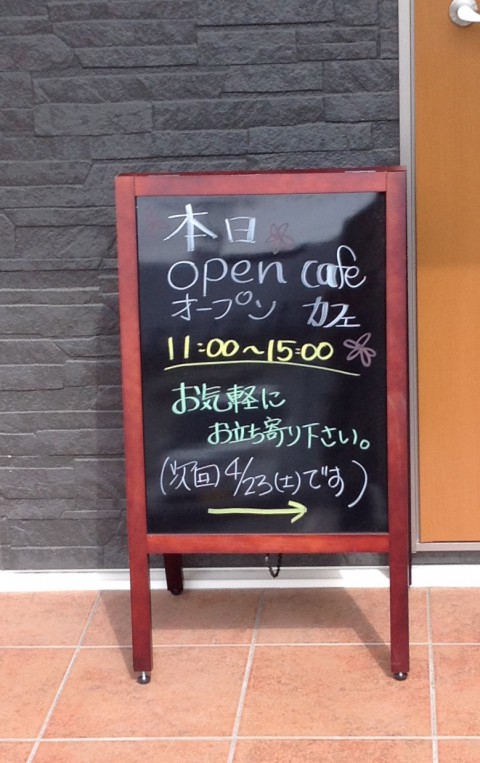 本日
open cafe
オープン カフェ
11:00〜15:00
お気軽に
お立ち寄り下さい。
(次回 4/23(土)です)